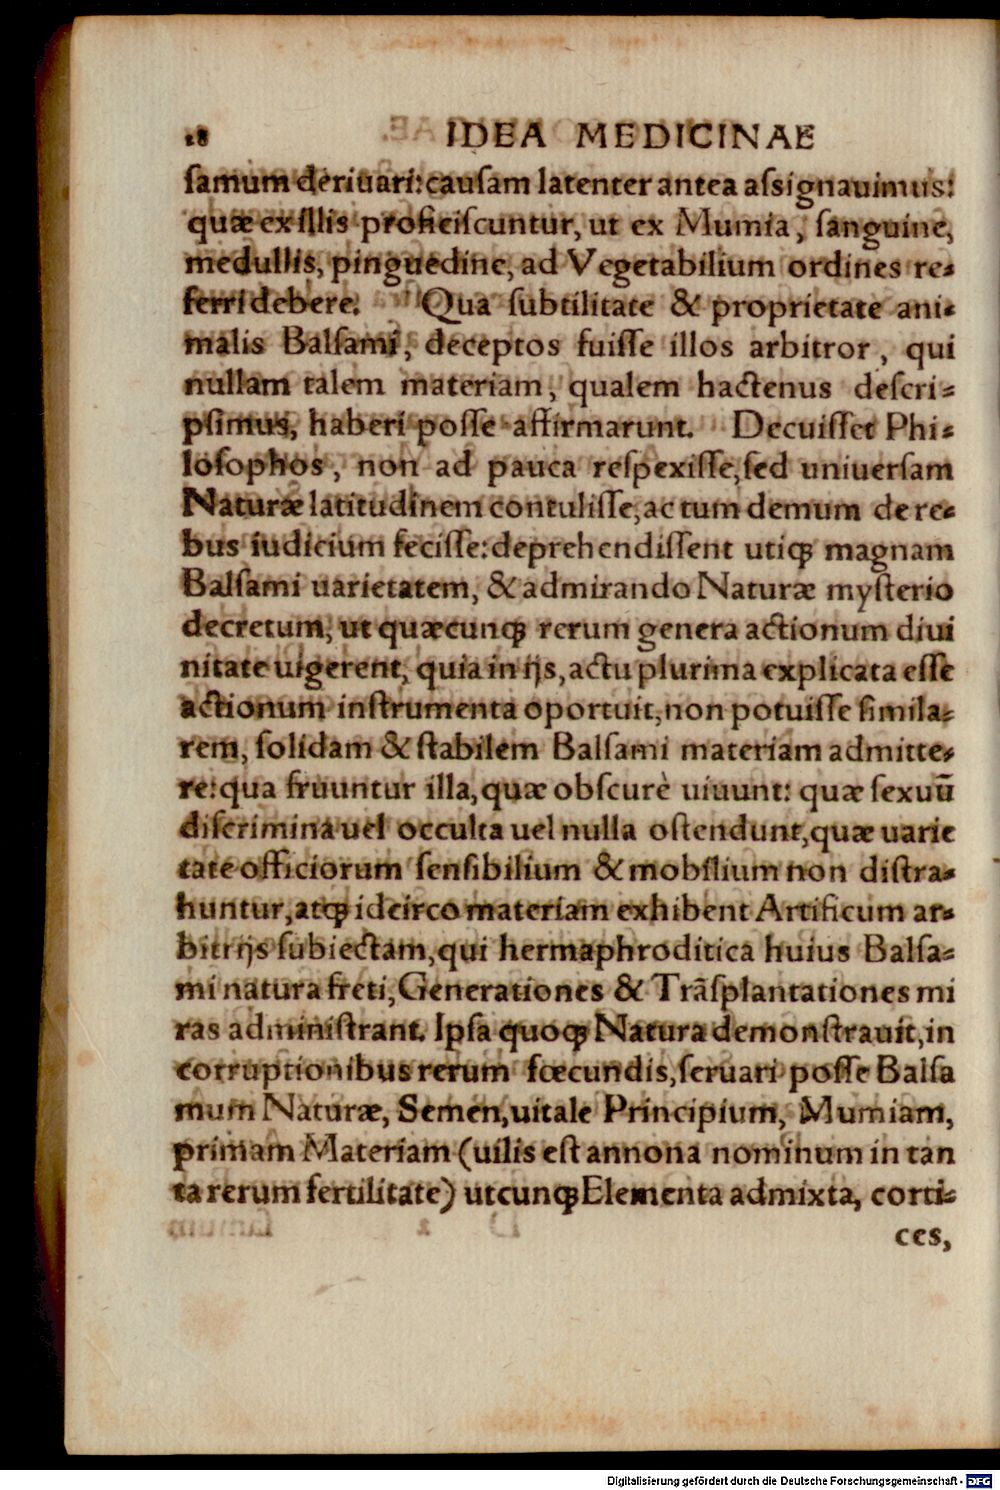 28 IDEA MEDICINAE
ſamum deriuari: cauſam latenter antea aſsignauimus:
quæ ex illis proficiſcuntur, ut ex Mumia, ſanguine,
medullis, pinguedine, ad Vegetabilium ordines re-
ferri debere. Qua ſubtilitate & proprietate ani-
malis Balſami, deceptos fuiſſe illos arbitror, qui
nullam talem materiam, qualem hactenus deſcri-
pſimus, haberi poſſe affirmarunt. Decuiſſet Phi-
loſophos, non ad pauca reſpexiſſe, ſed uniuerſam
Naturæ latitudinem contuliſſe, ac tum demum de re-
bus iudicium feciſſe: deprehendiſſent utiqꝫ magnam
Balſami uarietatem, & admirando Naturæ myſterio
decretum, ut quæcunqꝫ rerum genera actionum diui
nitate uigerent, quia in ijs, actu plurima explicata eſſe
actionum inſtrumenta oportuit, non potuiſſe ſimila-
rem, ſolidam & ſtabilem Balſami materiam admitte-
re: qua fruuntur illa, quæ obſcurè uiuunt: quæ ſexuū
diſcrimina uel occulta uel nulla oſtendunt, quæ uarie
tate officiorum ſenſibilium & mobilium non diſtra-
huntur, atqꝫ idcirco materiam exhibent Artificum ar-
bitrijs ſubiectam, qui hermaphroditica huius Balſa-
mi natura freti, Generationes & Trãſplantationes mi
ras adminiſtrant. Ipſa quoqꝫ Natura demonſtrauit, in
corruptionibus rerum fœcundis, ſeruari poſſe Balſa
mum Naturæ, Semen, uitale Principium, Mumiam,
primam Materiam (uilis eſt annona nominum in tan
ta rerum fertilitate) utcunqꝫ Elementa admixta, corti-
ces,
Digitalisierung gefördert durch die Deutsche Forschungsgemeinschaft - DFG